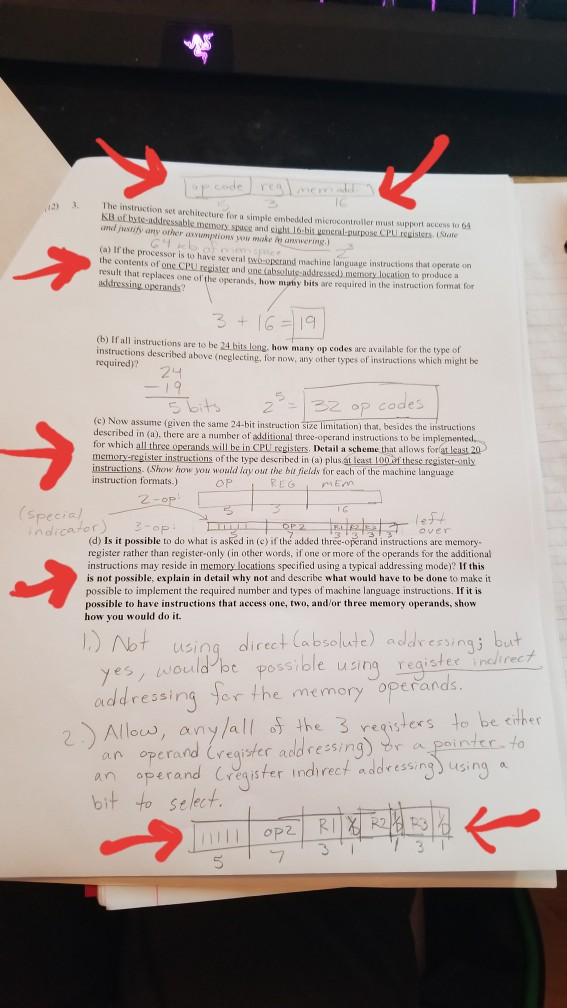 op code reg mem add
3 16
(12) 3. The instruction set architecture for a simple embedded microcontroller must support access to 64
KB of byte-addressable memory space and eight 16-bit general-purpose CPU registers. (State
and justify any other assumptions you make in answering.)
64 kb of mem space 2³
(a) If the processor is to have several two-operand machine language instructions that operate on
the contents of one CPU register and one (absolute-addressed) memory location to produce a
result that replaces one of the operands, how many bits are required in the instruction format for
addressing operands?
3 + 16 = 19
(b) If all instructions are to be 24 bits long, how many op codes are available for the type of
instructions described above (neglecting, for now, any other types of instructions which might be
required)?
24
-19
5 bits 2⁵ = 32 op codes
(c) Now assume (given the same 24-bit instruction size limitation) that, besides the instructions
described in (a), there are a number of additional three-operand instructions to be implemented,
for which all three operands will be in CPU registers. Detail a scheme that allows for at least 20
memory-register instructions of the type described in (a) plus at least 100 of these register-only
instructions. (Show how you would lay out the bit fields for each of the machine language
instruction formats.)
OP REG MEM
2-op:
5 3 16
(special indicator) 3-op: 11111 OP2 R1 R2 R3 left over
5 7 3 3 3
(d) Is it possible to do what is asked in (c) if the added three-operand instructions are memory-
register rather than register-only (in other words, if one or more of the operands for the additional
instructions may reside in memory locations specified using a typical addressing mode)? If this
is not possible, explain in detail why not and describe what would have to be done to make it
possible to implement the required number and types of machine language instructions. If it is
possible to have instructions that access one, two, and/or three memory operands, show
how you would do it.
1.) Not using direct (absolute) addressing; but
yes, would be possible using register indirect
addressing for the memory operands.
2.) Allow, any/all of the 3 registers to be either
an operand (register addressing) or a pointer to
an operand (register indirect addressing) using a
bit to select.
11111 OP2 R1 1/0 R2 1/0 R3 1/0
5 7 3 1 1 3 1